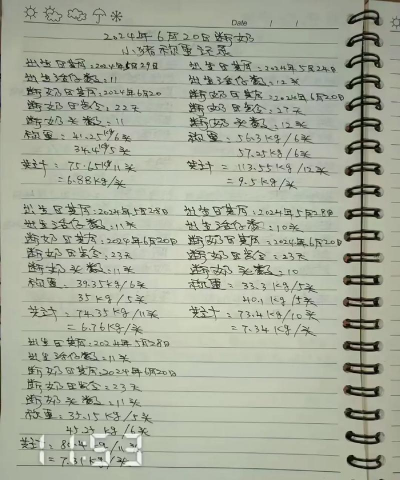 Date / /
2024年6月20日断奶
小猪称重记录
出生日期:2024年5月29日
出生活仔数:11
断奶日期:2024年6月20
断奶日龄:22天
断奶头数:11
称重=41.25kg/6头
34.4kg/5头
共计=75.65kg/11头
=6.88kg/头
出生日期:2024年5月24日
出生活仔数:12头
断奶日期:2024年6月20日
断奶日龄:27天
断奶头数:12头
称重=56.3kg/6头
57.25kg/6头
共计=113.55kg/12头
=9.5kg/头
出生日期:2024年5月28日
出生活仔数:11头
断奶日期:2024年6月20日
断奶日龄:23天
断奶头数:11头
称重=39.35kg/6头
35kg/5头
共计=74.35kg/11头
=6.76kg/头
出生日期:2024年5月28日
出生活仔数:10头
断奶日期:2024年6月20日
断奶日龄:23天
断奶头数:10
称重=33.3kg/5头
40.1kg/5头
共计=73.4kg/10头
=7.34kg/头
出生日期:2024年5月28日
出生活仔数:11头
断奶日期:2024年6月20日
断奶日龄:23天
断奶头数:11头
称重=35.15kg/5头
45.25kg/6头
共计=80.4kg/11头
=7.31kg/头
11:53